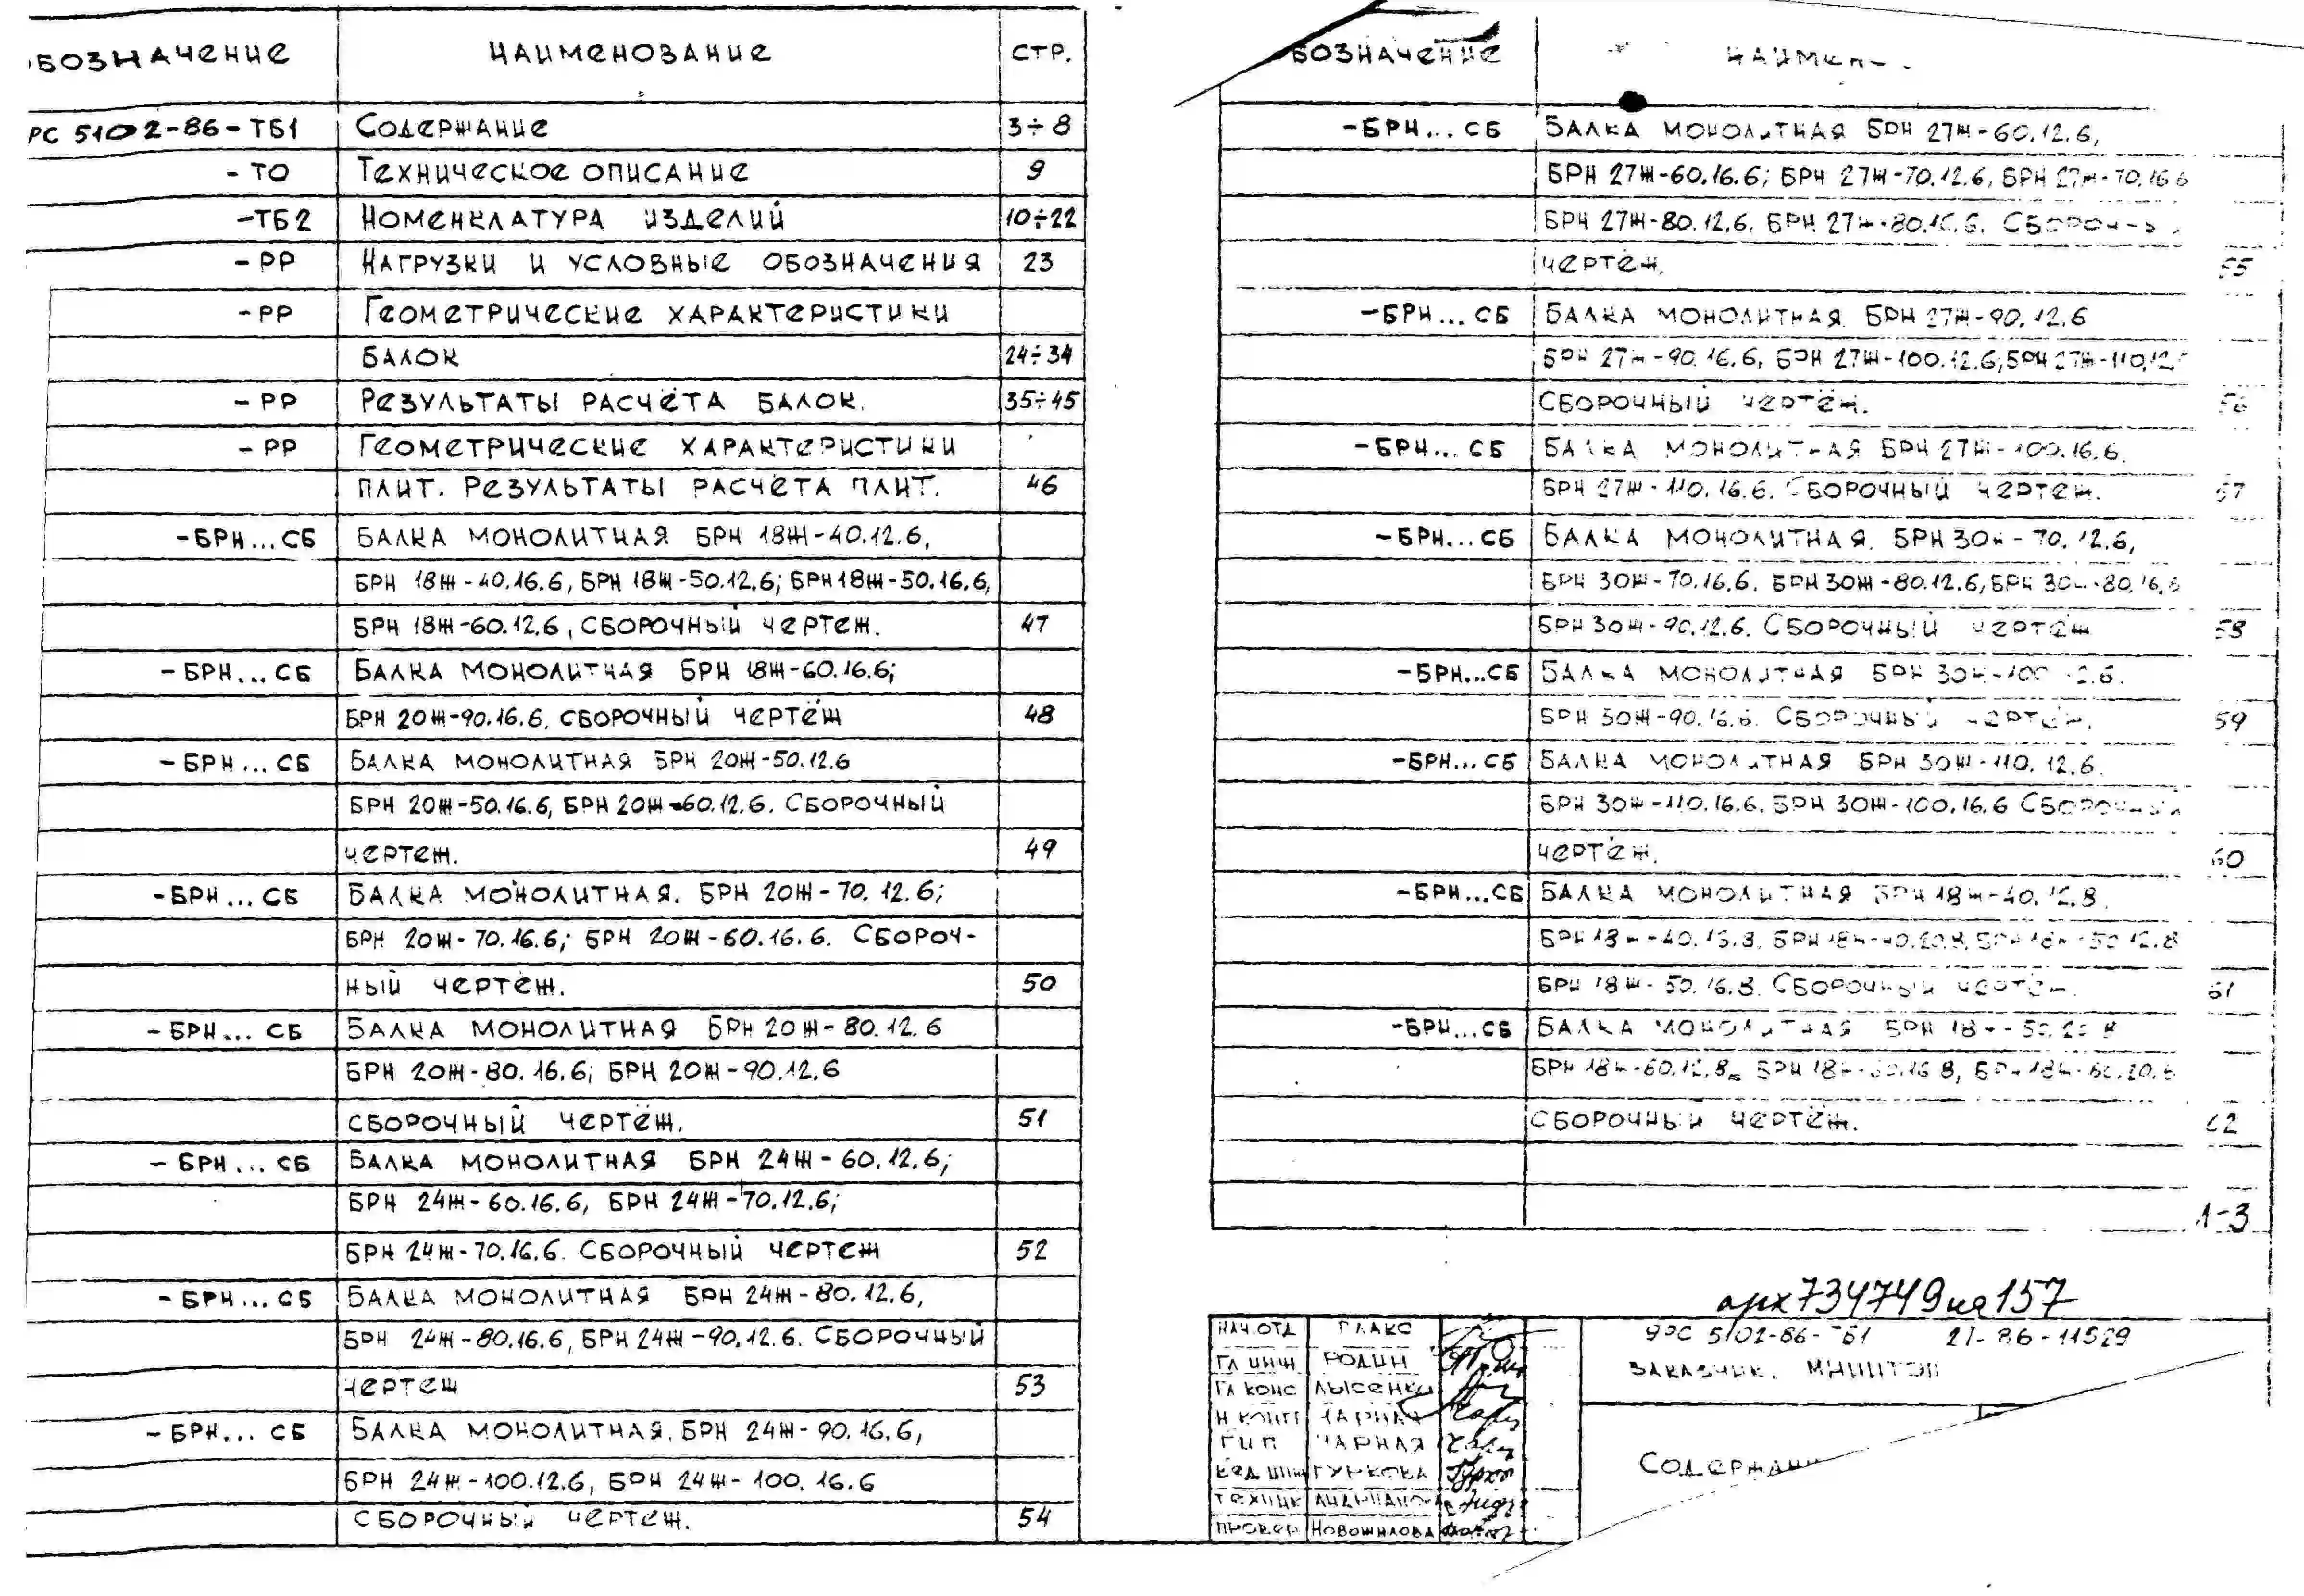 ОБОЗНАЧЕНИЕ НАИМЕНОВАНИЕ СТР.
РС 5102-86-ТБ1 СОДЕРЖАНИЕ 3÷8
-ТО ТЕХНИЧЕСКОЕ ОПИСАНИЕ 9
-ТБ2 НОМЕНКЛАТУРА ИЗДЕЛИЙ 10÷22
-РР НАГРУЗКИ И УСЛОВНЫЕ ОБОЗНАЧЕНИЯ 23
-РР ГЕОМЕТРИЧЕСКИЕ ХАРАКТЕРИСТИКИ
БАЛОК 24÷34
-РР РЕЗУЛЬТАТЫ РАСЧЁТА БАЛОК. 35÷45
-РР ГЕОМЕТРИЧЕСКИЕ ХАРАКТЕРИСТИКИ
ПЛИТ. РЕЗУЛЬТАТЫ РАСЧЁТА ПЛИТ. 46
-БРН...СБ БАЛКА МОНОЛИТНАЯ БРН 18Ж-40.12.6,
БРН 18Ж-40.16.6, БРН 18Ж-50.12.6; БРН 18Ж-50.16.6,
БРН 18Ж-60.12.6, СБОРОЧНЫЙ ЧЕРТЕЖ. 47
-БРН...СБ БАЛКА МОНОЛИТНАЯ БРН 18Ж-60.16.6;
БРН 20Ж-90.16.6. СБОРОЧНЫЙ ЧЕРТЁЖ 48
-БРН...СБ БАЛКА МОНОЛИТНАЯ БРН 20Ж-50.12.6
БРН 20Ж-50.16.6, БРН 20Ж-60.12.6. СБОРОЧНЫЙ
ЧЕРТЕЖ. 49
-БРН...СБ БАЛКА МОНОЛИТНАЯ. БРН 20Ж-70.12.6;
БРН 20Ж-70.16.6; БРН 20Ж-60.16.6. СБОРОЧ-
НЫЙ ЧЕРТЁЖ. 50
-БРН...СБ БАЛКА МОНОЛИТНАЯ БРН 20Ж-80.12.6
БРН 20Ж-80.16.6; БРН 20Ж-90.12.6
СБОРОЧНЫЙ ЧЕРТЁЖ. 51
-БРН...СБ БАЛКА МОНОЛИТНАЯ БРН 24Ж-60.12.6;
БРН 24Ж-60.16.6, БРН 24Ж-70.12.6;
БРН 24Ж-70.16.6. СБОРОЧНЫЙ ЧЕРТЕЖ 52
-БРН...СБ БАЛКА МОНОЛИТНАЯ БРН 24Ж-80.12.6,
БРН 24Ж-80.16.6, БРН 24Ж-90.12.6. СБОРОЧНЫЙ
ЧЕРТЕЖ 53
-БРН...СБ БАЛКА МОНОЛИТНАЯ. БРН 24Ж-90.16.6,
БРН 24Ж-100.12.6, БРН 24Ж-100.16.6
СБОРОЧНЫЙ ЧЕРТЕЖ. 54
БОЗНАЧЕНИЕ
-БРН...СБ БАЛКА МОНОЛИТНАЯ БРН 27Ж-60.12.6,
БРН 27Ж-60.16.6; БРН 27Ж-70.12.6, БРН 27Ж-70.16.6
БРН 27Ж-80.12.6, БРН 27Ж-80.16.6. СБОРОЧНЫЙ
ЧЕРТЁЖ. 55
-БРН...СБ БАЛКА МОНОЛИТНАЯ БРН 27Ж-90.12.6
БРН 27Ж-90.16.6, БРН 27Ж-100.12.6, БРН 27Ж-110.12.6
СБОРОЧНЫЙ ЧЕРТЁЖ. 56
-БРН...СБ БАЛКА МОНОЛИТНАЯ БРН 27Ж-100.16.6.
БРН 27Ж-110.16.6. СБОРОЧНЫЙ ЧЕРТЕЖ. 57
-БРН...СБ БАЛКА МОНОЛИТНАЯ. БРН 30Ж-70.12.6,
БРН 30Ж-70.16.6. БРН 30Ж-80.12.6, БРН 30Ж-80.16.6
БРН 30Ж-90.12.6. СБОРОЧНЫЙ ЧЕРТЁЖ 58
-БРН...СБ БАЛКА МОНОЛИТНАЯ БРН 30Ж-100.12.6.
БРН 30Ж-90.16.6. СБОРОЧНЫЙ ЧЕРТЁЖ. 59
-БРН...СБ БАЛКА МОНОЛИТНАЯ БРН 30Ж-110.12.6.
БРН 30Ж-110.16.6. БРН 30Ж-100.16.6 СБОРОЧНЫЙ
ЧЕРТЁЖ. 60
-БРН...СБ БАЛКА МОНОЛИТНАЯ БРН 18Ж-40.12.8.
БРН 18Ж-40.16.8, БРН 18Ж-40.20.8, БРН 18Ж-50.12.8
БРН 18Ж-50.16.8. СБОРОЧНЫЙ ЧЕРТЁЖ. 61
-БРН...СБ БАЛКА МОНОЛИТНАЯ БРН 18Ж-50.20.8
БРН 18Ж-60.12.8, БРН 18Ж-60.16.8, БРН 18Ж-60.20.8
СБОРОЧНЫЙ ЧЕРТЁЖ. 62
1-3
арх734749на157
НАЧ.ОТД ГЛАКС
ГЛ ИНЖ РОДИН
ГЛ КОНС ЛЫСЕНКО
Н КОНТ ЧАРНАЯ
ГИП ЧАРНАЯ
ВЕД ИНЖ ГУРКОВА
ТЕХНИК
ПРОВЕР НОВОЖИЛОВА
РС 5102-86-ТБ1 21-86-11529
ЗАКАЗЧИК. МНИИТЭП
СОДЕРЖАНИ